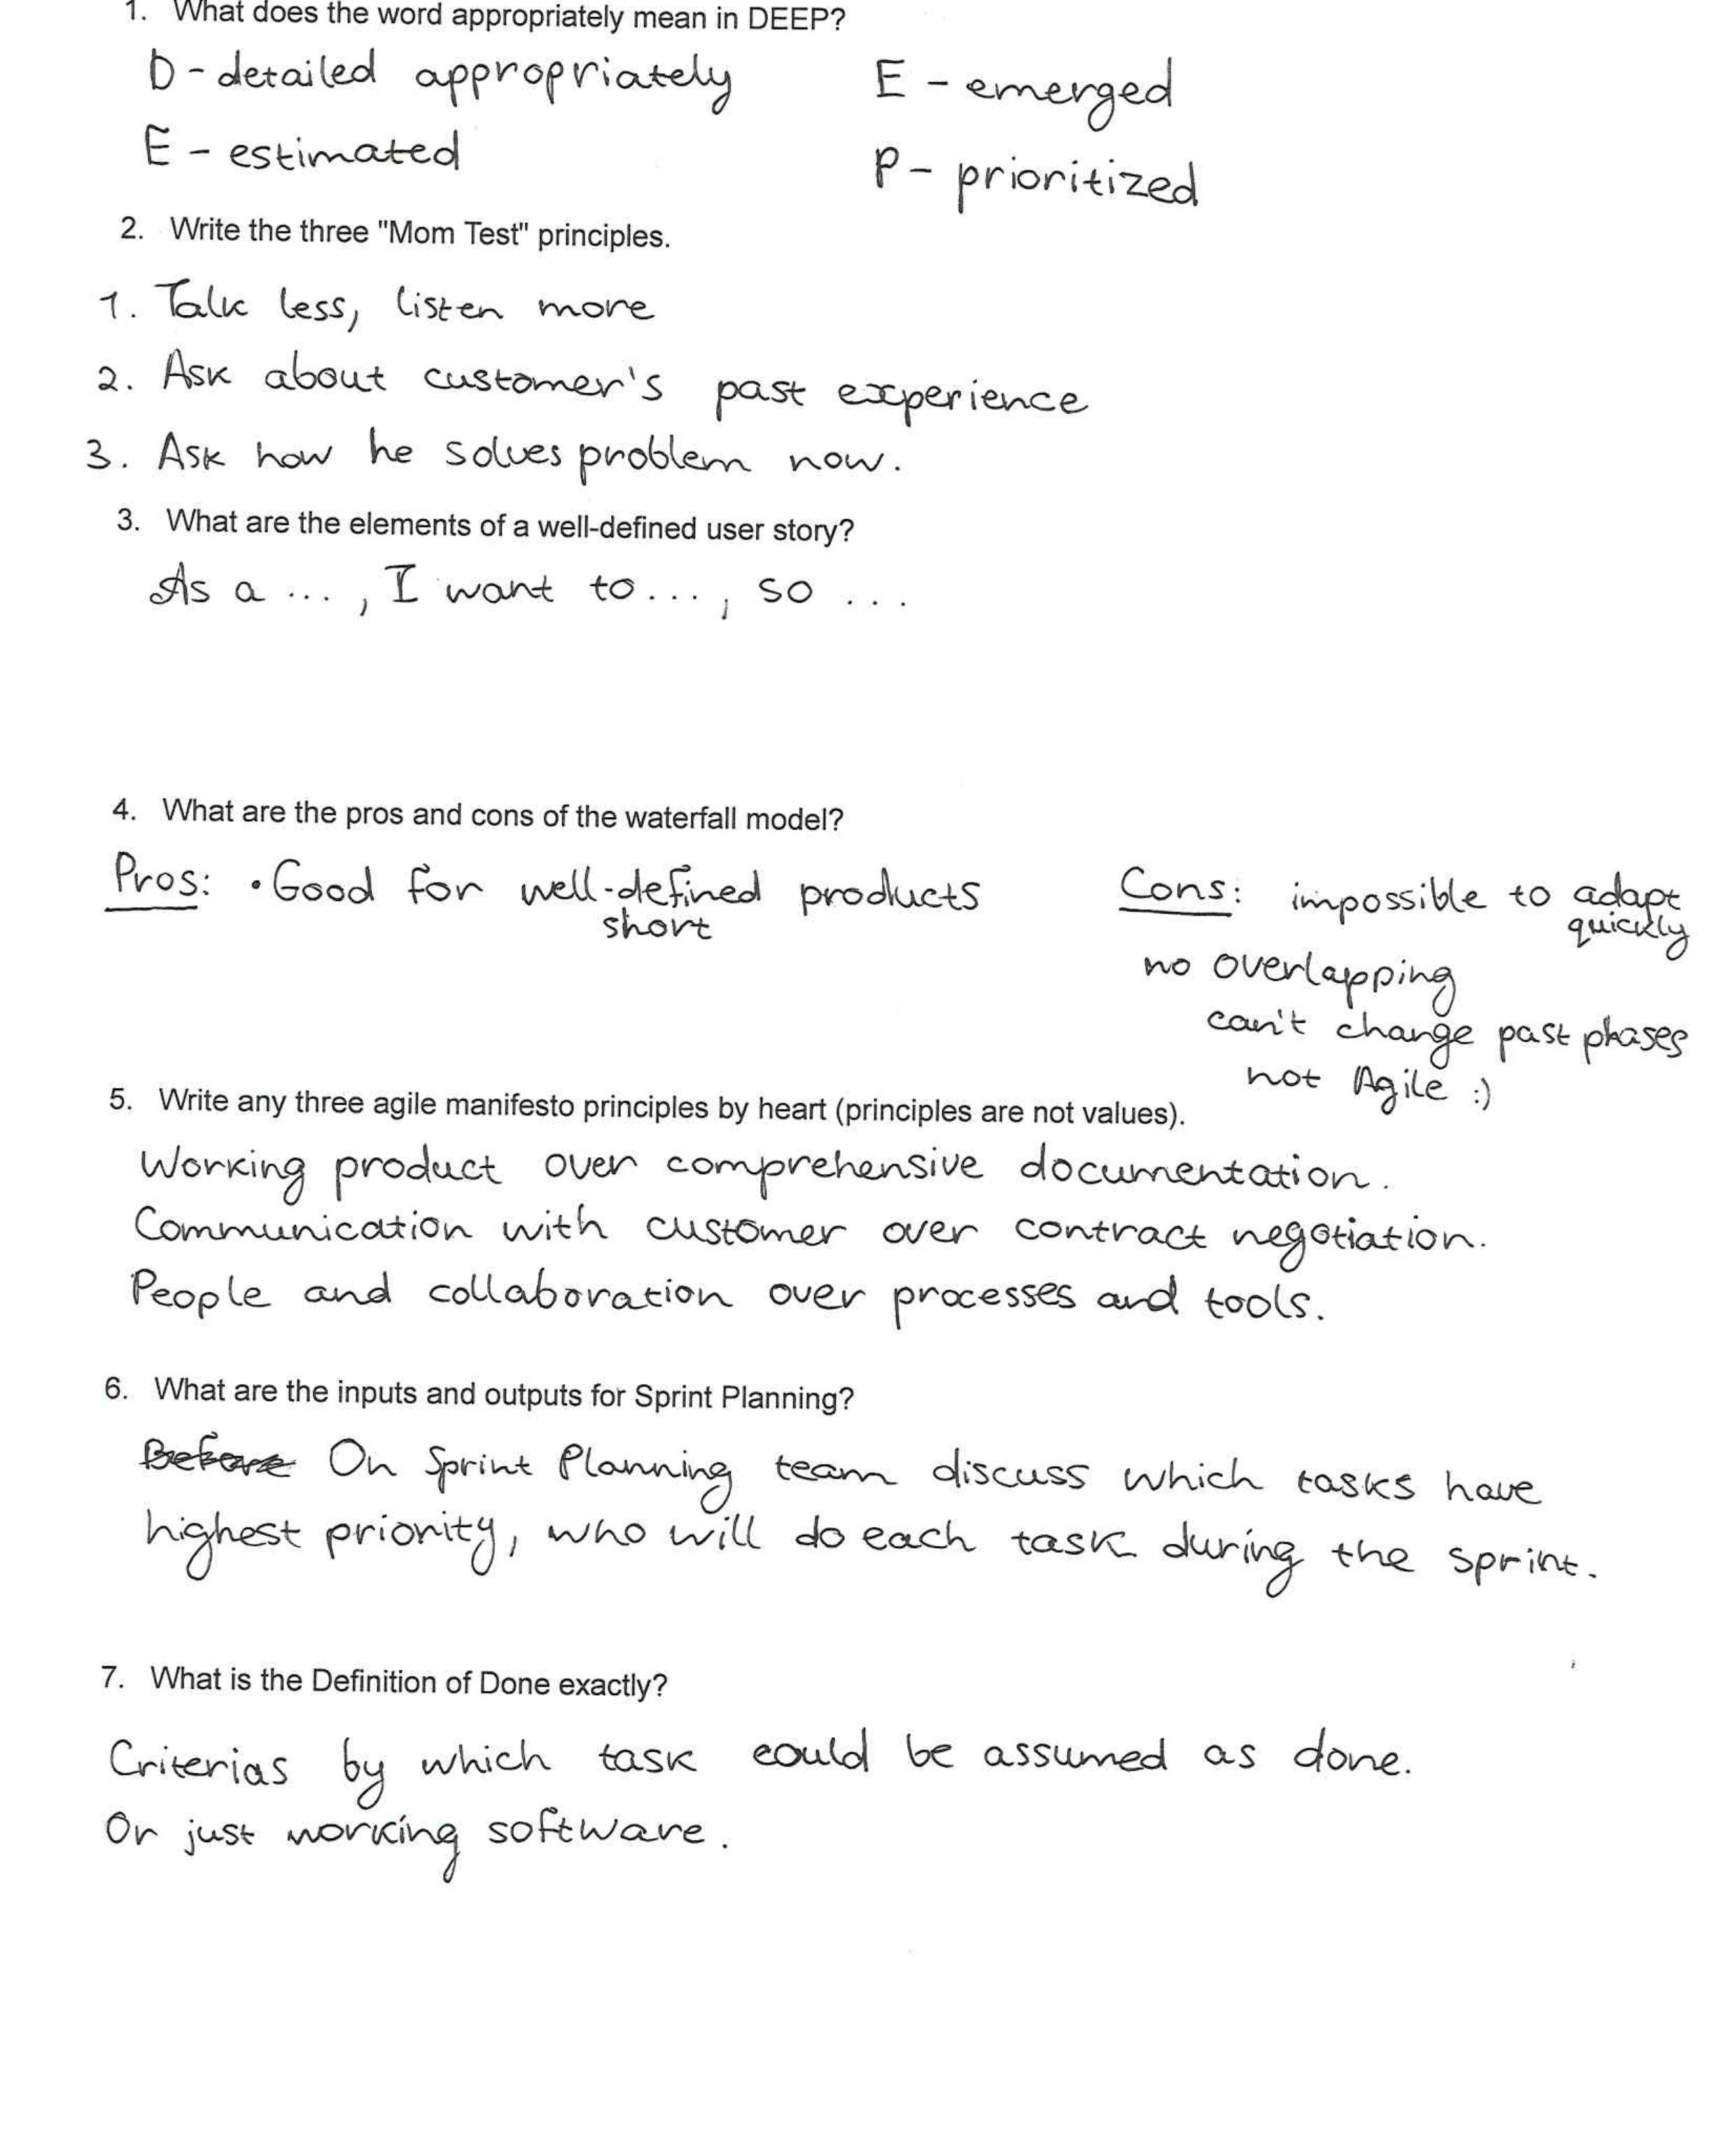 1. What does the word appropriately mean in DEEP?
D - detailed appropriately
E - estimated
E - emerged
P - prioritized
2. Write the three "Mom Test" principles.
1. Talk less, listen more
2. Ask about customer's past experience
3. Ask how he solves problem now.
3. What are the elements of a well-defined user story?
As a ..., I want to..., so ...
4. What are the pros and cons of the waterfall model?
Pros: • Good for well-defined products
short
Cons: impossible to adapt
quickly
no overlapping
can't change past phases
not Agile :)
5. Write any three agile manifesto principles by heart (principles are not values).
Working product over comprehensive documentation.
Communication with customer over contract negotiation.
People and collaboration over processes and tools.
6. What are the inputs and outputs for Sprint Planning?
Before On Sprint Planning team discuss which tasks have
highest priority, who will do each task during the sprint.
7. What is the Definition of Done exactly?
Criterias by which task could be assumed as done.
Or just working software.